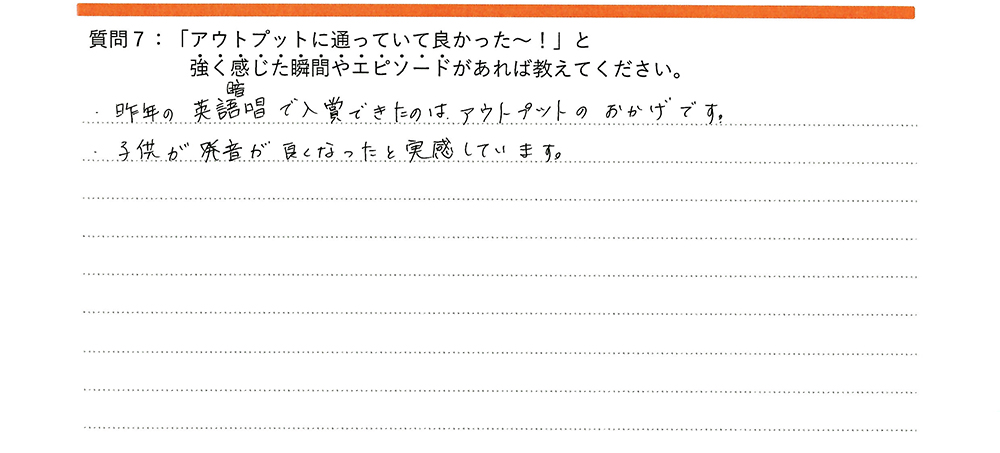 質問7：「アウトプットに通っていて良かった～！」と
強く感じた瞬間やエピソードがあれば教えてください。
・昨年の英語暗唱で入賞できたのはアウトプットのおかげです。
・子供が発音が良くなったと実感しています。